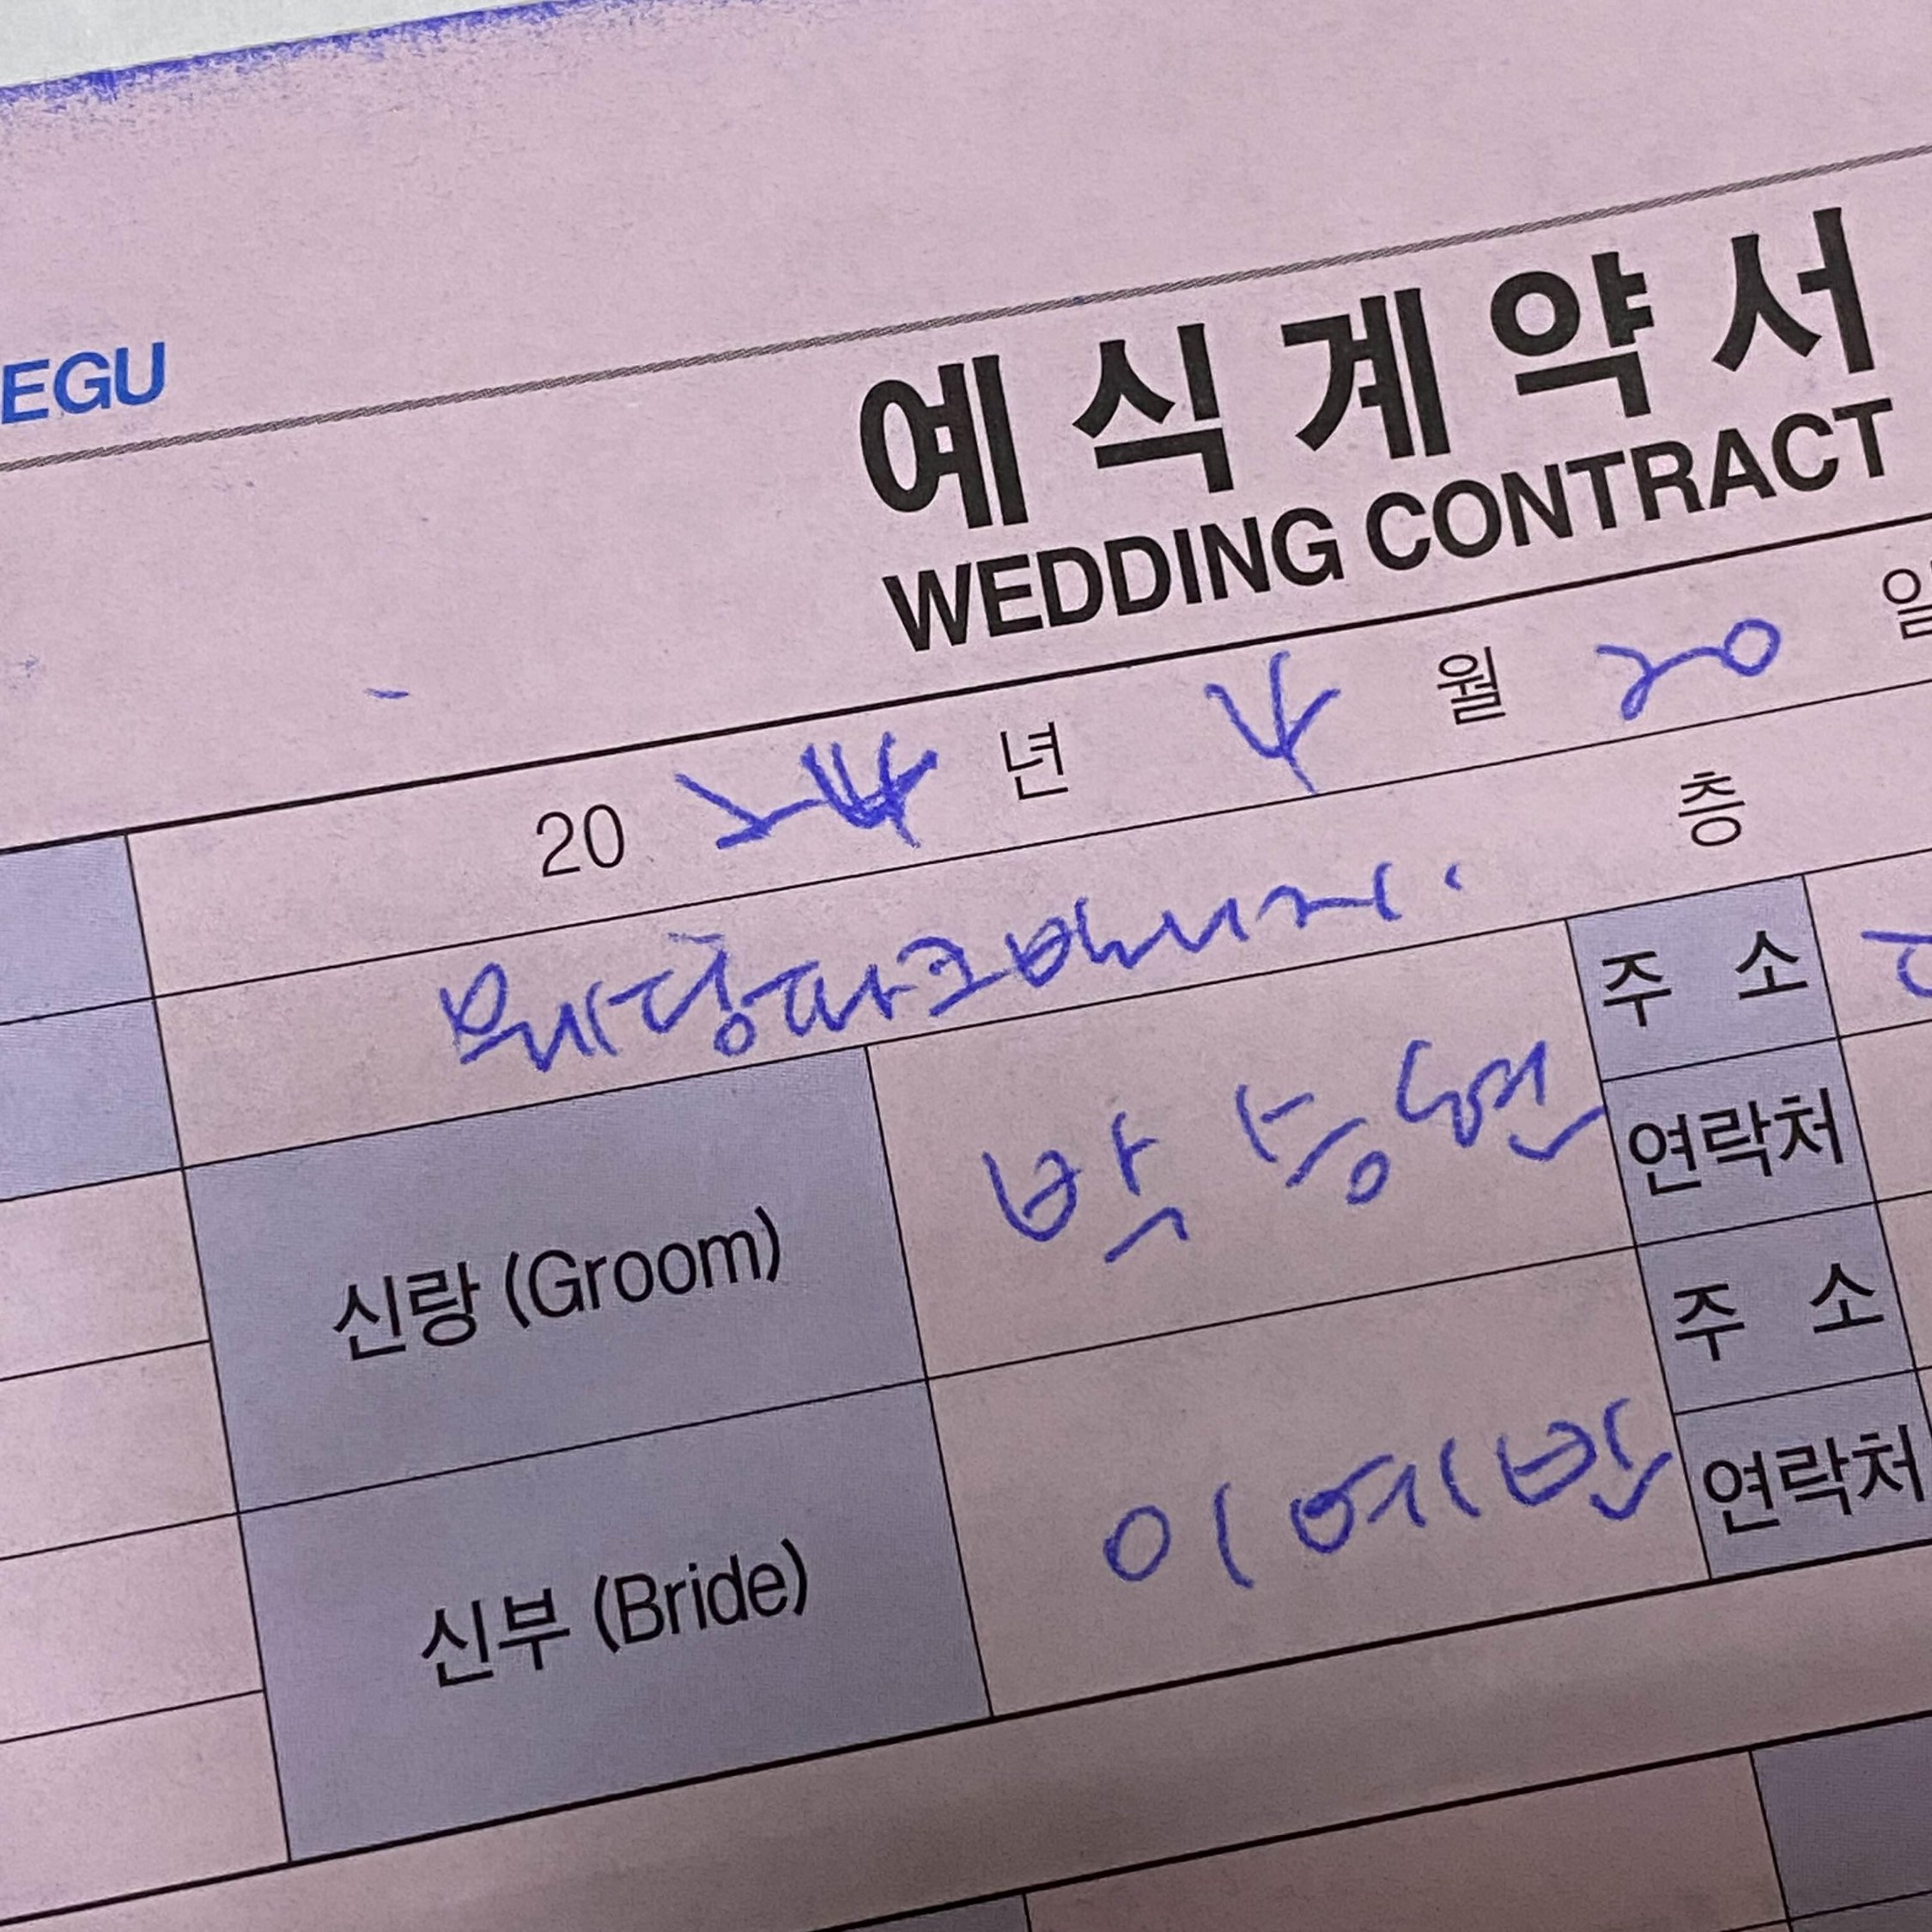 EGU
예식계약서
WEDDING CONTRACT
2024년 4월 20일
웨딩파크빌리지. 층
신랑 (Groom) 박승현 주 소
연락처
신부 (Bride) 이예빈 주 소
연락처